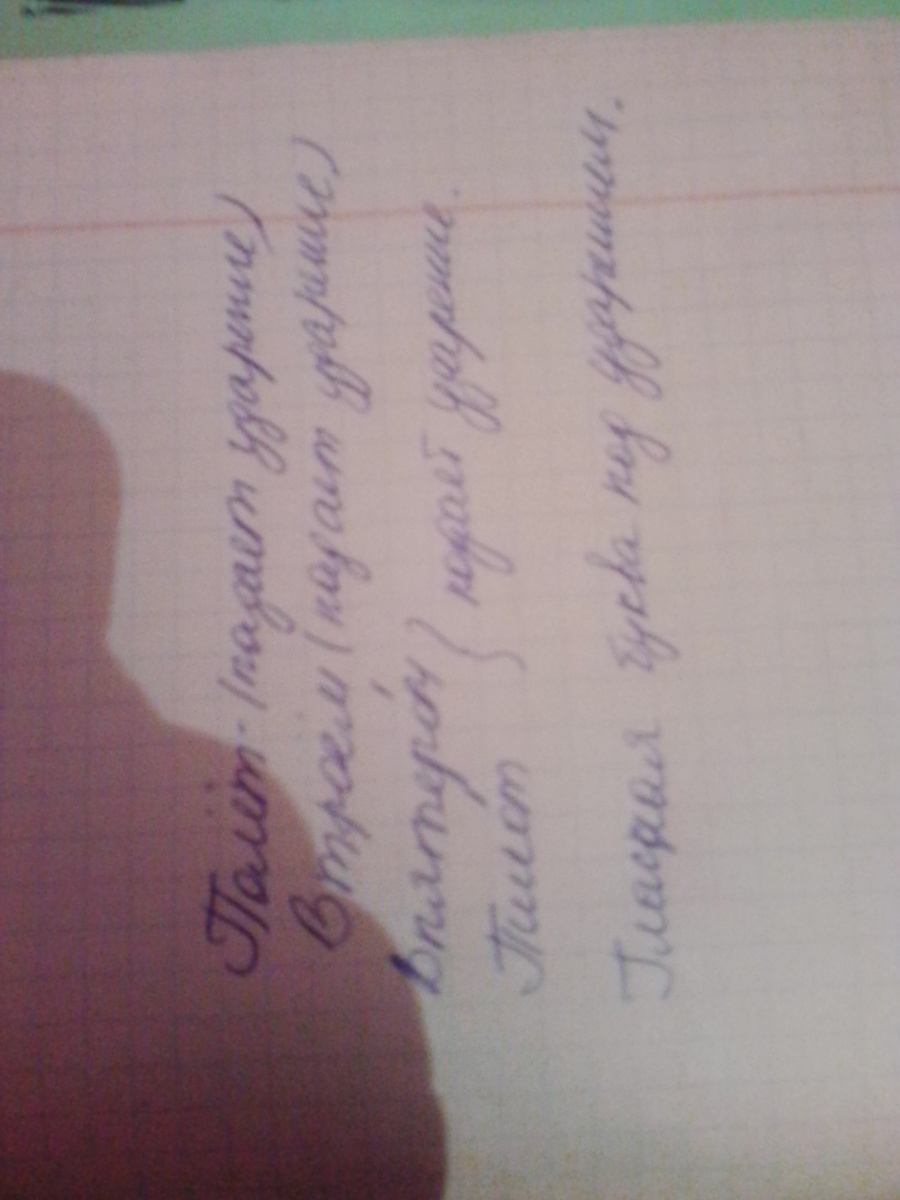 Полёт - (падает ударение)
Втроём (падает ударение)
Впятером } падает ударение.
Пилот
Гласная буква под ударением.